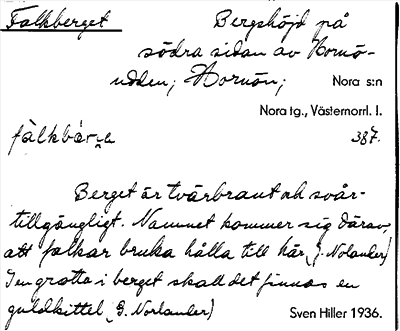 Falkberget Bergshöjd på
södra sidan av Hornö-
udden; Hornön; Nora s:n
Nora tg., Västernorrl. l.
387.
Berget är tvärbrant och svår-
tillgängligt. Namnet kommer sig därav,
att falkar bruka hålla till här,
I en grotta i berget skall det finnas en
guldkittel
Sven Hiller 1936.